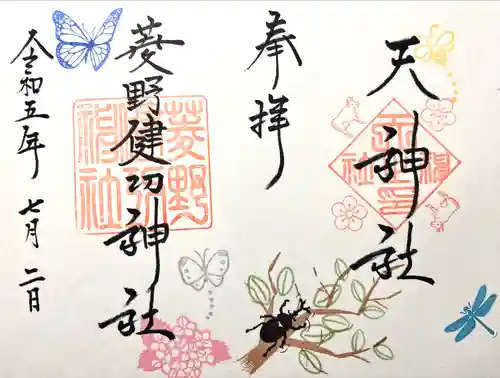 天神社
奉拝
菱野健功神社
令和五年 七月 二日
菱野
神社